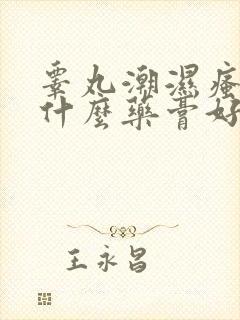 睾丸潮濕瘙
什麼藥膏好
王永昌